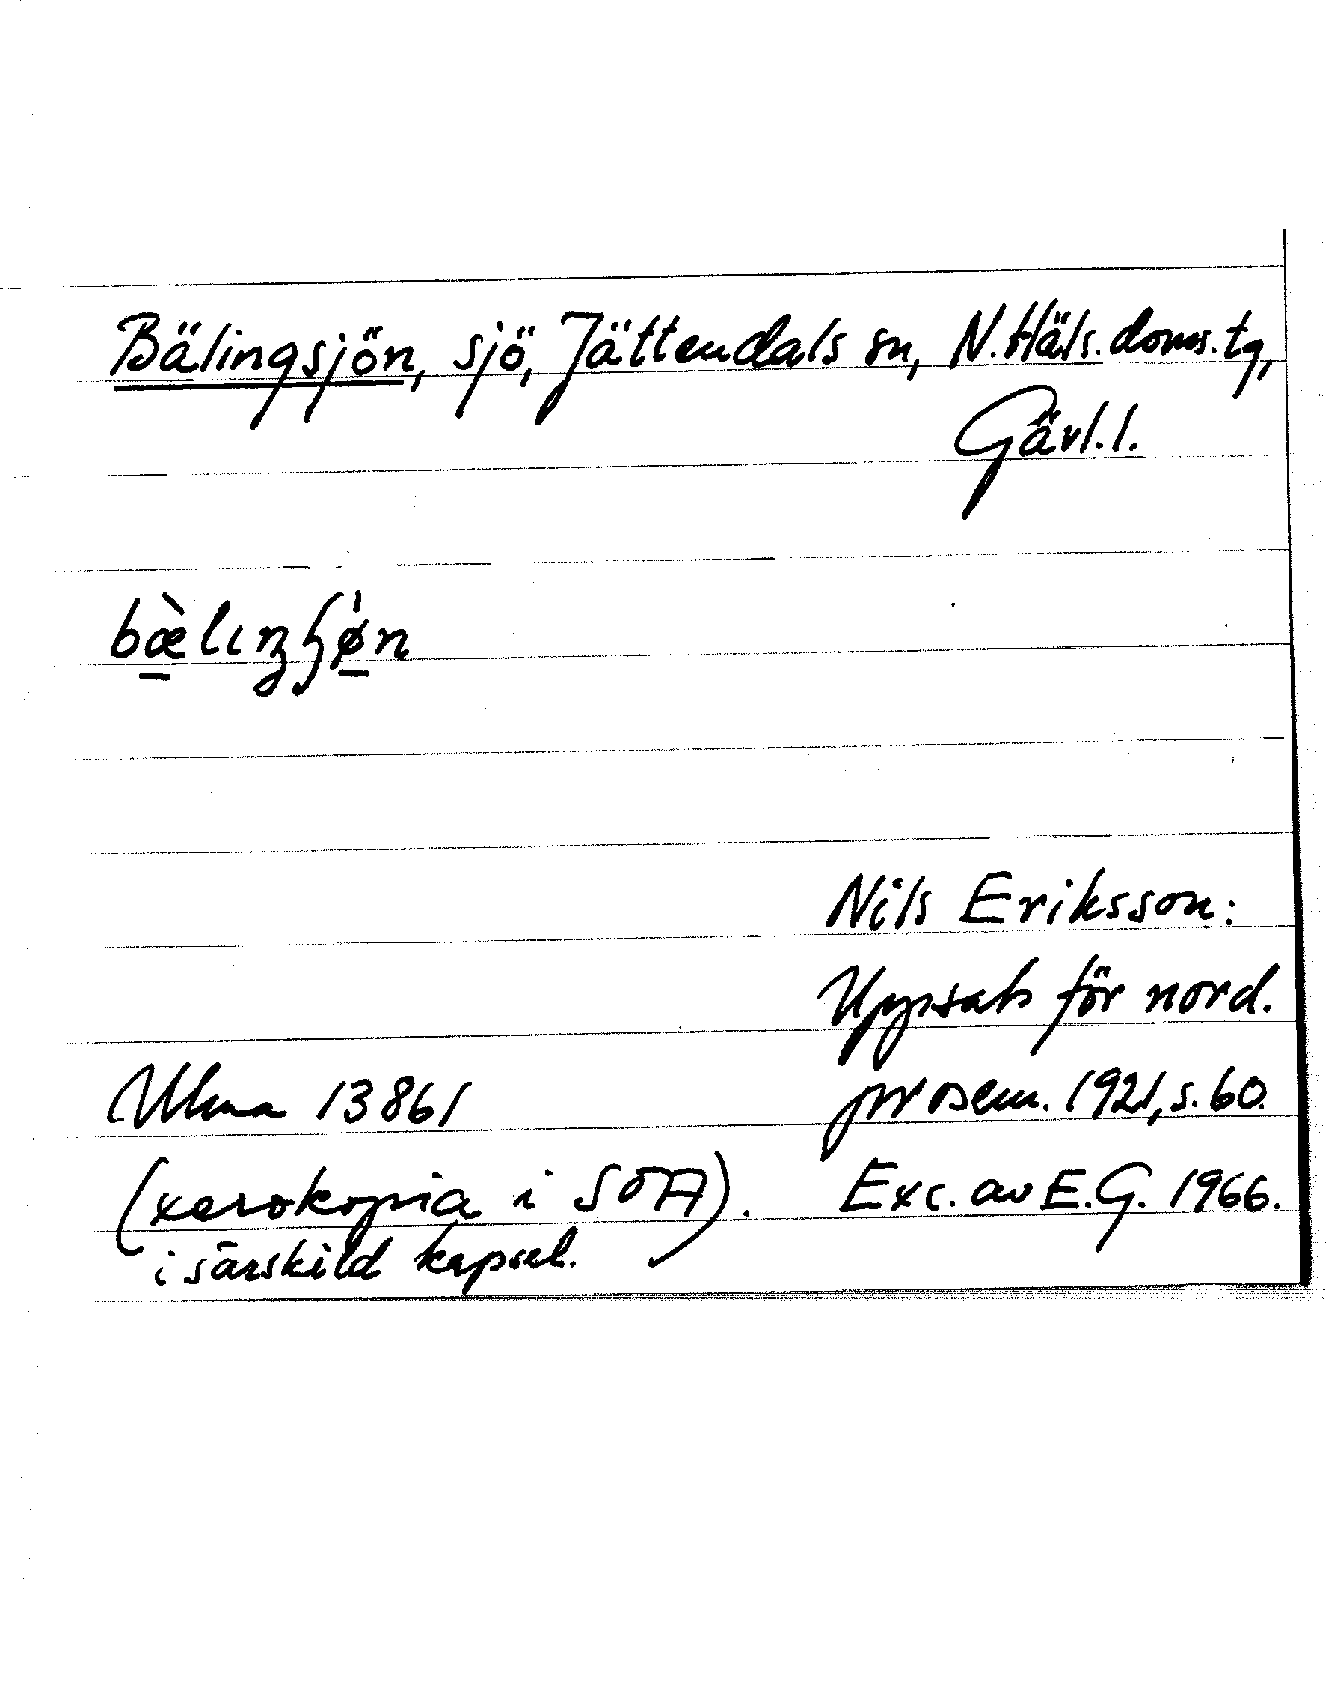 Bälingsjön, sjö, Jättendals sn, N. Häls. doms. tg,
Gävl. l.
bæ̀lıŋʃø̍n
Nils Eriksson:
Uppsats för nord.
prosem. 1921, s. 60.
Ulma 13861
(xerokopia i SOA).
i särskild kapsel.
Exc. av E.G. 1966.